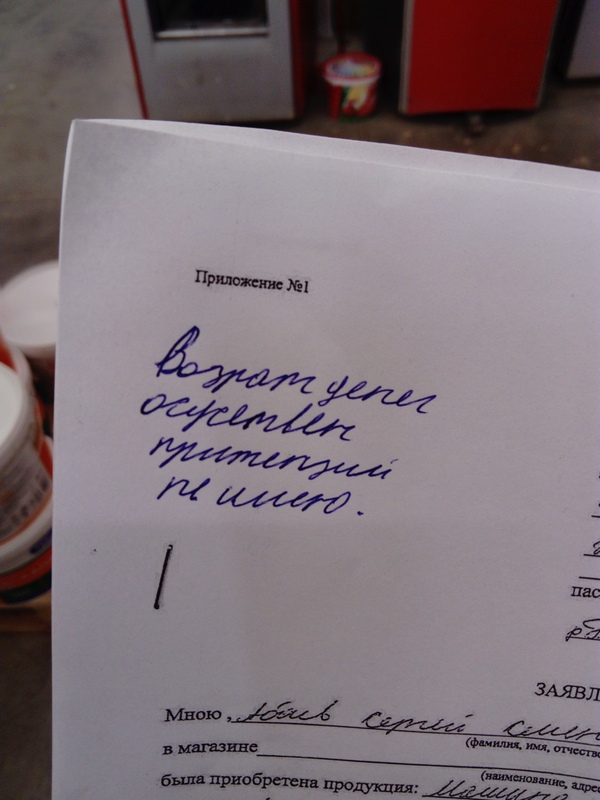 Приложение №1
Возрат денег
осуществен
притензий
не имею.
пас
ЗАЯВЛ
Мною, Сергей
(фамилия, имя, отчеств
в магазине
(наименование, адре
была приобретена продукция: Машина